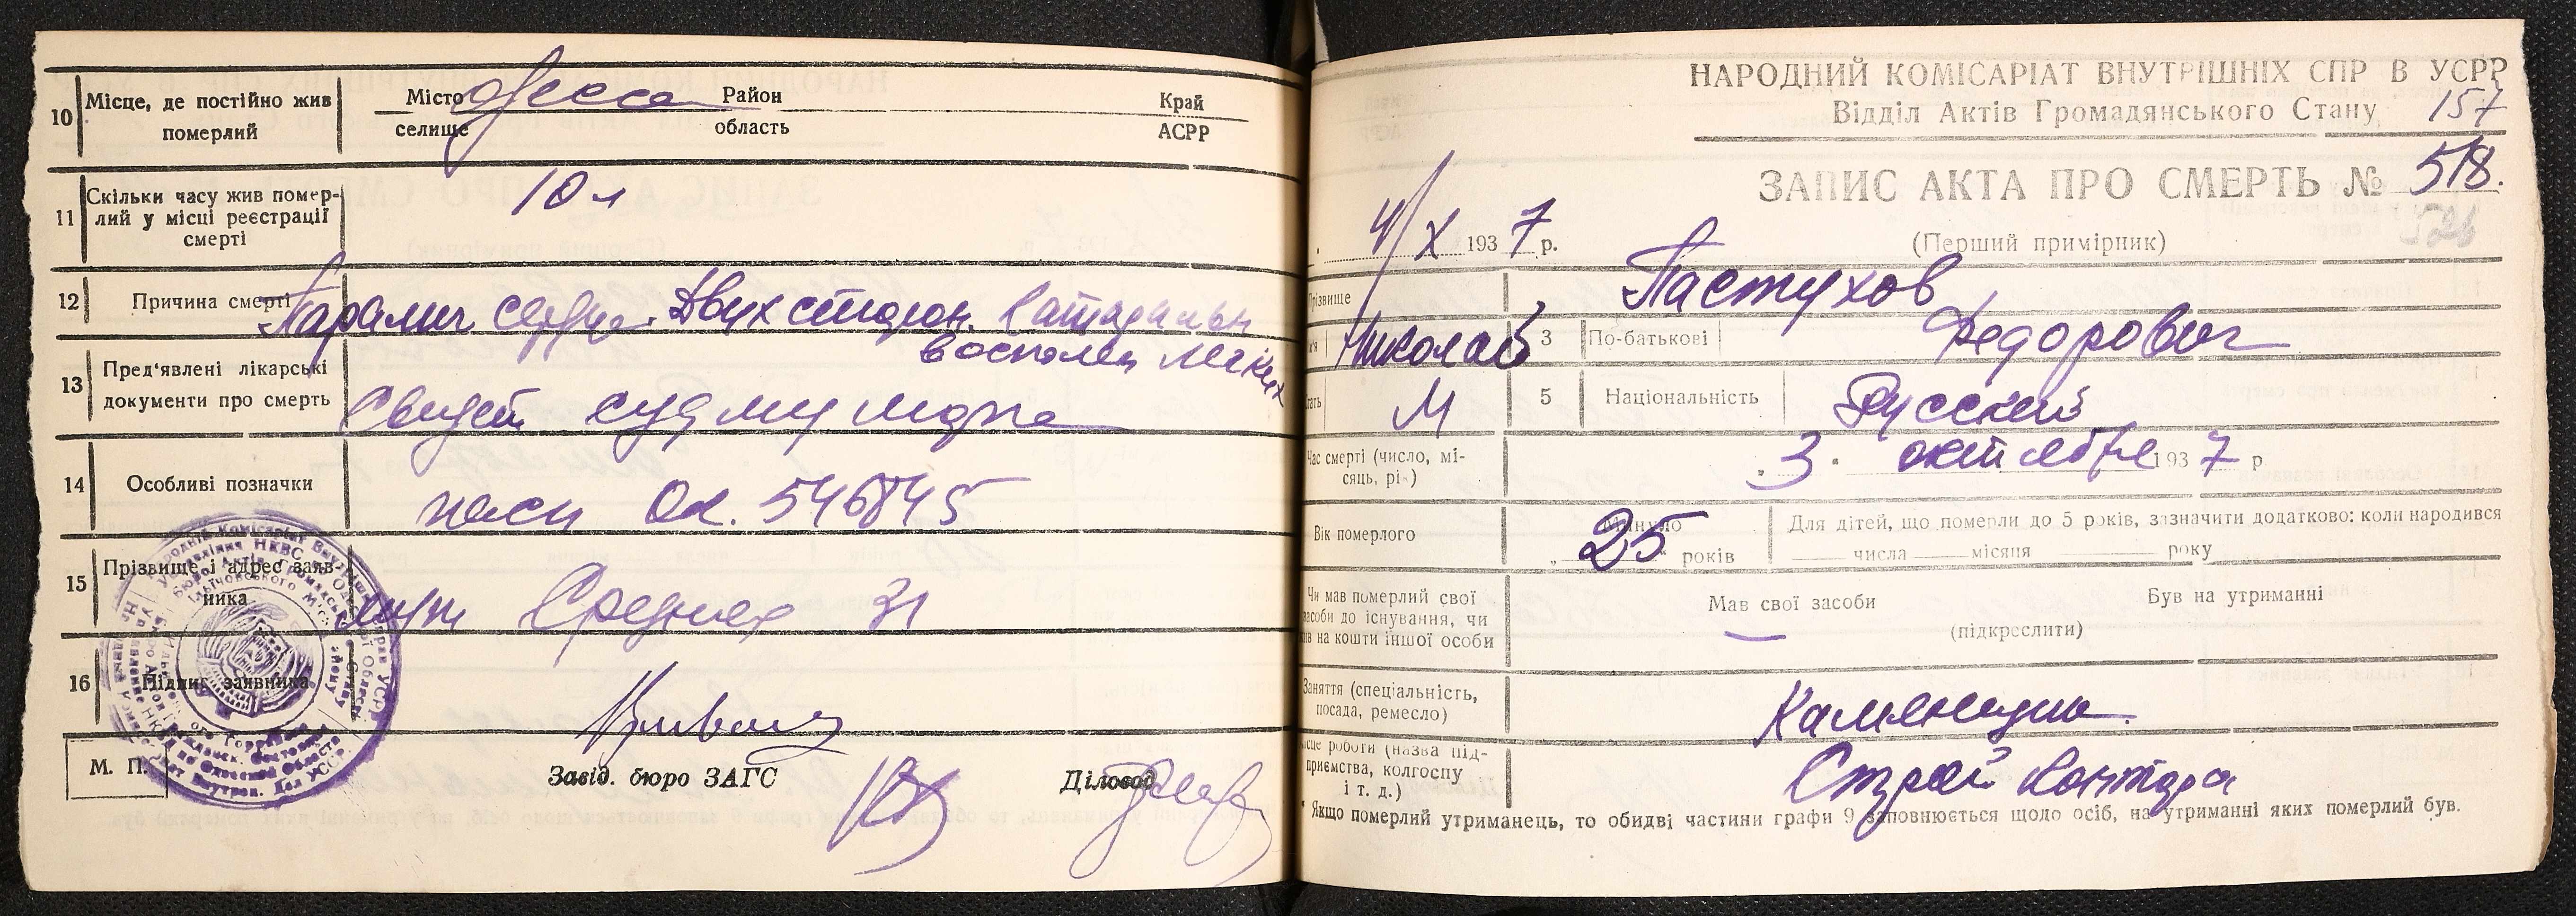 10 Місце, де постійно жив померлий
Місто Одесса Район Край
селище область АСРР
11 Скільки часу жив помер-
лий у місці реєстрації
смерті
10 л
12 Причина смерті Паралич сердца. Двухсторон. Катаральн
воспален легких
13 Пред'явлені лікарські
документи про смерть
Свидет судмедморга
14 Особливі позначки
пасп Од. 546845
15 Прізвище і адрес заяв-
ника
Средняя 31
16 Підпис заявника
М. П.
Завід. бюро ЗАГС Діловод
НАРОДНИЙ КОМІСАРІАТ ВНУТРІШНІХ СПР В УСРР
Відділ Актів Громадянського Стану 157
ЗАПИС АКТА ПРО СМЕРТЬ № 518.
526
4/X 1937 р.
(Перший примірник)
Прізвище Пастухов
Николай 3 По-батькові Федорович
М 5 Національність Русский
Час смерті (число, мі-
сяць, рік) „3" октября 1937 р
Вік померлого
Минуло
„25" років
Для дітей, що померли до 5 років, зазначити додатково: коли народився
числа місяця року
Чи мав померлий свої
засоби до існування, чи
жив на кошти іншої особи
Мав свої засоби Був на утриманні
(підкреслити)
Заняття (спеціальність,
посада, ремесло)
Каменщик.
Місце роботи (назва під-
приємства, колгоспу
і т. д.)
Строй контора
* Якщо померлий утриманець, то обидві частини графи 9 заповнюється щодо осіб, на утриманні яких померлий був.